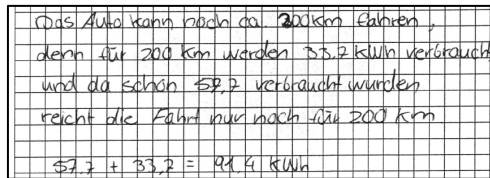 Das Auto kann noch ca. 200km fahren,
denn für 200 km werden 33.7 kWh verbraucht
und da schon 57,7 verbraucht wurden
reicht die Fahrt nur noch für 200 km
57.7 + 33,7 = 91.4 kWh